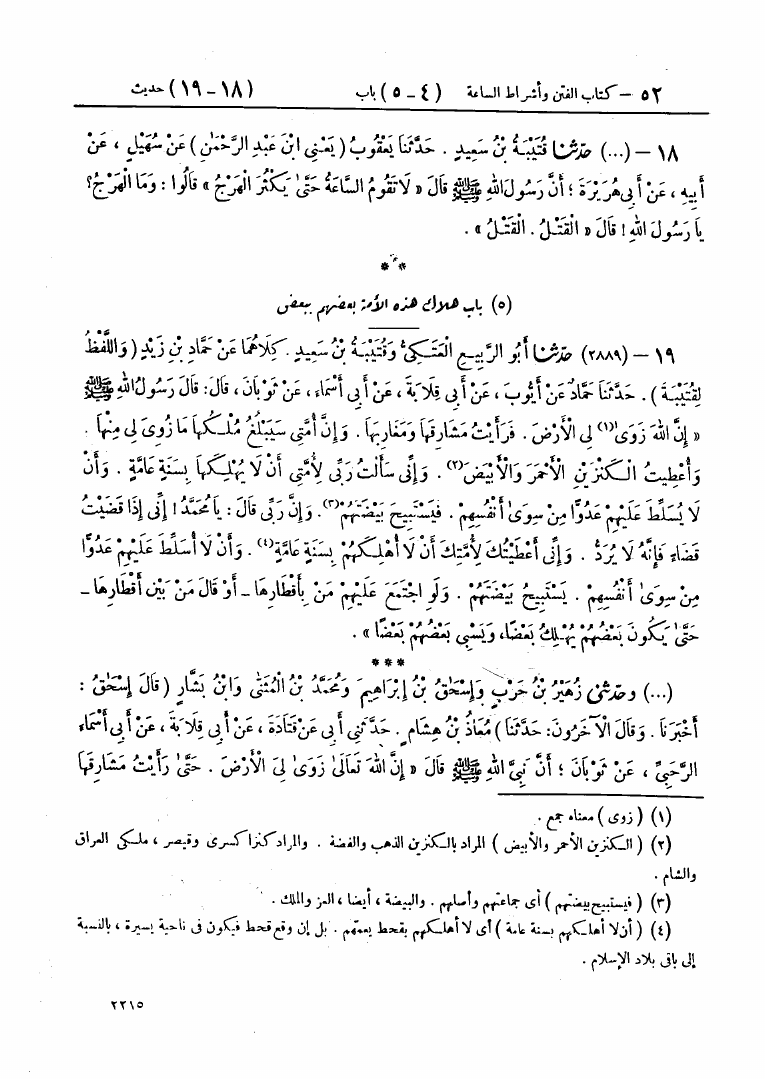 ٥٢ – كتاب الفتن وأشراط الساعة (٤ – ٥) باب (١٨ – ١٩) حديث
١٨ – (...) حَدَّثَنَا قُتَيْبَةُ بْنُ سَعِيدٍ . حَدَّثَنَا يَعْقُوبُ ( يَعْنِي ابْنَ عَبْدِ الرَّحْمَٰنِ ) عَنْ سُهَيْلٍ ، عَنْ
أَبِيهِ ، عَنْ أَبِي هُرَيْرَةَ ؛ أَنَّ رَسُولَ اللهِ ﷺ قَالَ « لَا تَقُومُ السَّاعَةُ حَتَّىٰ يَكْثُرَ الْهَرْجُ » قَالُوا : وَمَا الْهَرْجُ ؟
يَا رَسُولَ اللهِ ! قَالَ « الْقَتْلُ . الْقَتْلُ » .
***
(٥) باب هلاك هذه الأمة بعضهم ببعض
١٩ – (٢٨٨٩) حَدَّثَنَا أَبُو الرَّبِيعِ الْعَتَكِيُّ وَقُتَيْبَةُ بْنُ سَعِيدٍ . كِلَاهُمَا عَنْ حَمَّادِ بْنِ زَيْدٍ ( وَاللَّفْظُ
لِقُتَيْبَةَ ) . حَدَّثَنَا حَمَّادٌ عَنْ أَيُّوبَ ، عَنْ أَبِي قِلَابَةَ ، عَنْ أَبِي أَسْمَاءَ ، عَنْ ثَوْبَانَ ، قَالَ: قَالَ رَسُولُ اللهِ ﷺ
« إِنَّ اللهَ زَوَىٰ(١) لِيَ الْأَرْضَ . فَرَأَيْتُ مَشَارِقَهَا وَمَغَارِبَهَا . وَإِنَّ أُمَّتِي سَيَبْلُغُ مُلْكُهَا مَا زُوِيَ لِي مِنْهَا .
وَأُعْطِيتُ الْكَنْزَيْنِ الْأَحْمَرَ وَالْأَبْيَضَ(٢) . وَإِنِّي سَأَلْتُ رَبِّي لِأُمَّتِي أَنْ لَا يُهْلِكَهَا بِسَنَةٍ عَامَّةٍ . وَأَنْ
لَا يُسَلِّطَ عَلَيْهِمْ عَدُوًّا مِنْ سِوَىٰ أَنْفُسِهِمْ . فَيَسْتَبِيحَ بَيْضَتَهُمْ(٣). وَإِنَّ رَبِّي قَالَ : يَا مُحَمَّدُ ! إِنِّي إِذَا قَضَيْتُ
قَضَاءً فَإِنَّهُ لَا يُرَدُّ . وَإِنِّي أَعْطَيْتُكَ لِأُمَّتِكَ أَنْ لَا أُهْلِكَهُمْ بِسَنَةٍ عَامَّةٍ(٤) . وَأَنْ لَا أُسَلِّطَ عَلَيْهِمْ عَدُوًّا
مِنْ سِوَىٰ أَنْفُسِهِمْ . يَسْتَبِيحُ بَيْضَتَهُمْ . وَلَوِ اجْتَمَعَ عَلَيْهِمْ مَنْ بِأَقْطَارِهَا – أَوْ قَالَ مَنْ بَيْنَ أَقْطَارِهَا –
حَتَّىٰ يَكُونَ بَعْضُهُمْ يُهْلِكُ بَعْضًا، وَيَسْبِي بَعْضُهُمْ بَعْضًا » .
***
(...) وَحَدَّثَنِي زُهَيْرُ بْنُ حَرْبٍ وَإِسْحَاقُ بْنُ إِبْرَاهِيمَ وَمُحَمَّدُ بْنُ الْمُثَنَّىٰ وَابْنُ بَشَّارٍ ( قَالَ إِسْحَاقُ :
أَخْبَرَنَا . وَقَالَ الْآخَرُونَ: حَدَّثَنَا ) مُعَاذُ بْنُ هِشَامٍ . حَدَّثَنِي أَبِي عَنْ قَتَادَةَ ، عَنْ أَبِي قِلَابَةَ ، عَنْ أَبِي أَسْمَاءَ
الرَّحَبِيِّ ، عَنْ ثَوْبَانَ ؛ أَنَّ نَبِيَّ اللهِ ﷺ قَالَ « إِنَّ اللهَ تَعَالَىٰ زَوَىٰ لِيَ الْأَرْضَ . حَتَّىٰ رَأَيْتُ مَشَارِقَهَا
(١) ( زوى ) معناه جمع .
(٢) ( الكنزين الأحمر والأبيض ) المراد بالكنزين الذهب والفضة . والمراد كنزا كسرى وقيصر ، ملكي العراق
والشام .
(٣) ( فيستبيح بيضتهم ) أى جماعتهم وأصلهم . والبيضة ، أيضا ، العز والملك .
(٤) ( أن لا أهلكهم بسنة عامة ) أى لا أهلكهم بقحط يعمهم . بل إن وقع قحط فيكون فى ناحية يسيرة ، بالنسبة
إلى باقى بلاد الإسلام .
٢٢١٥